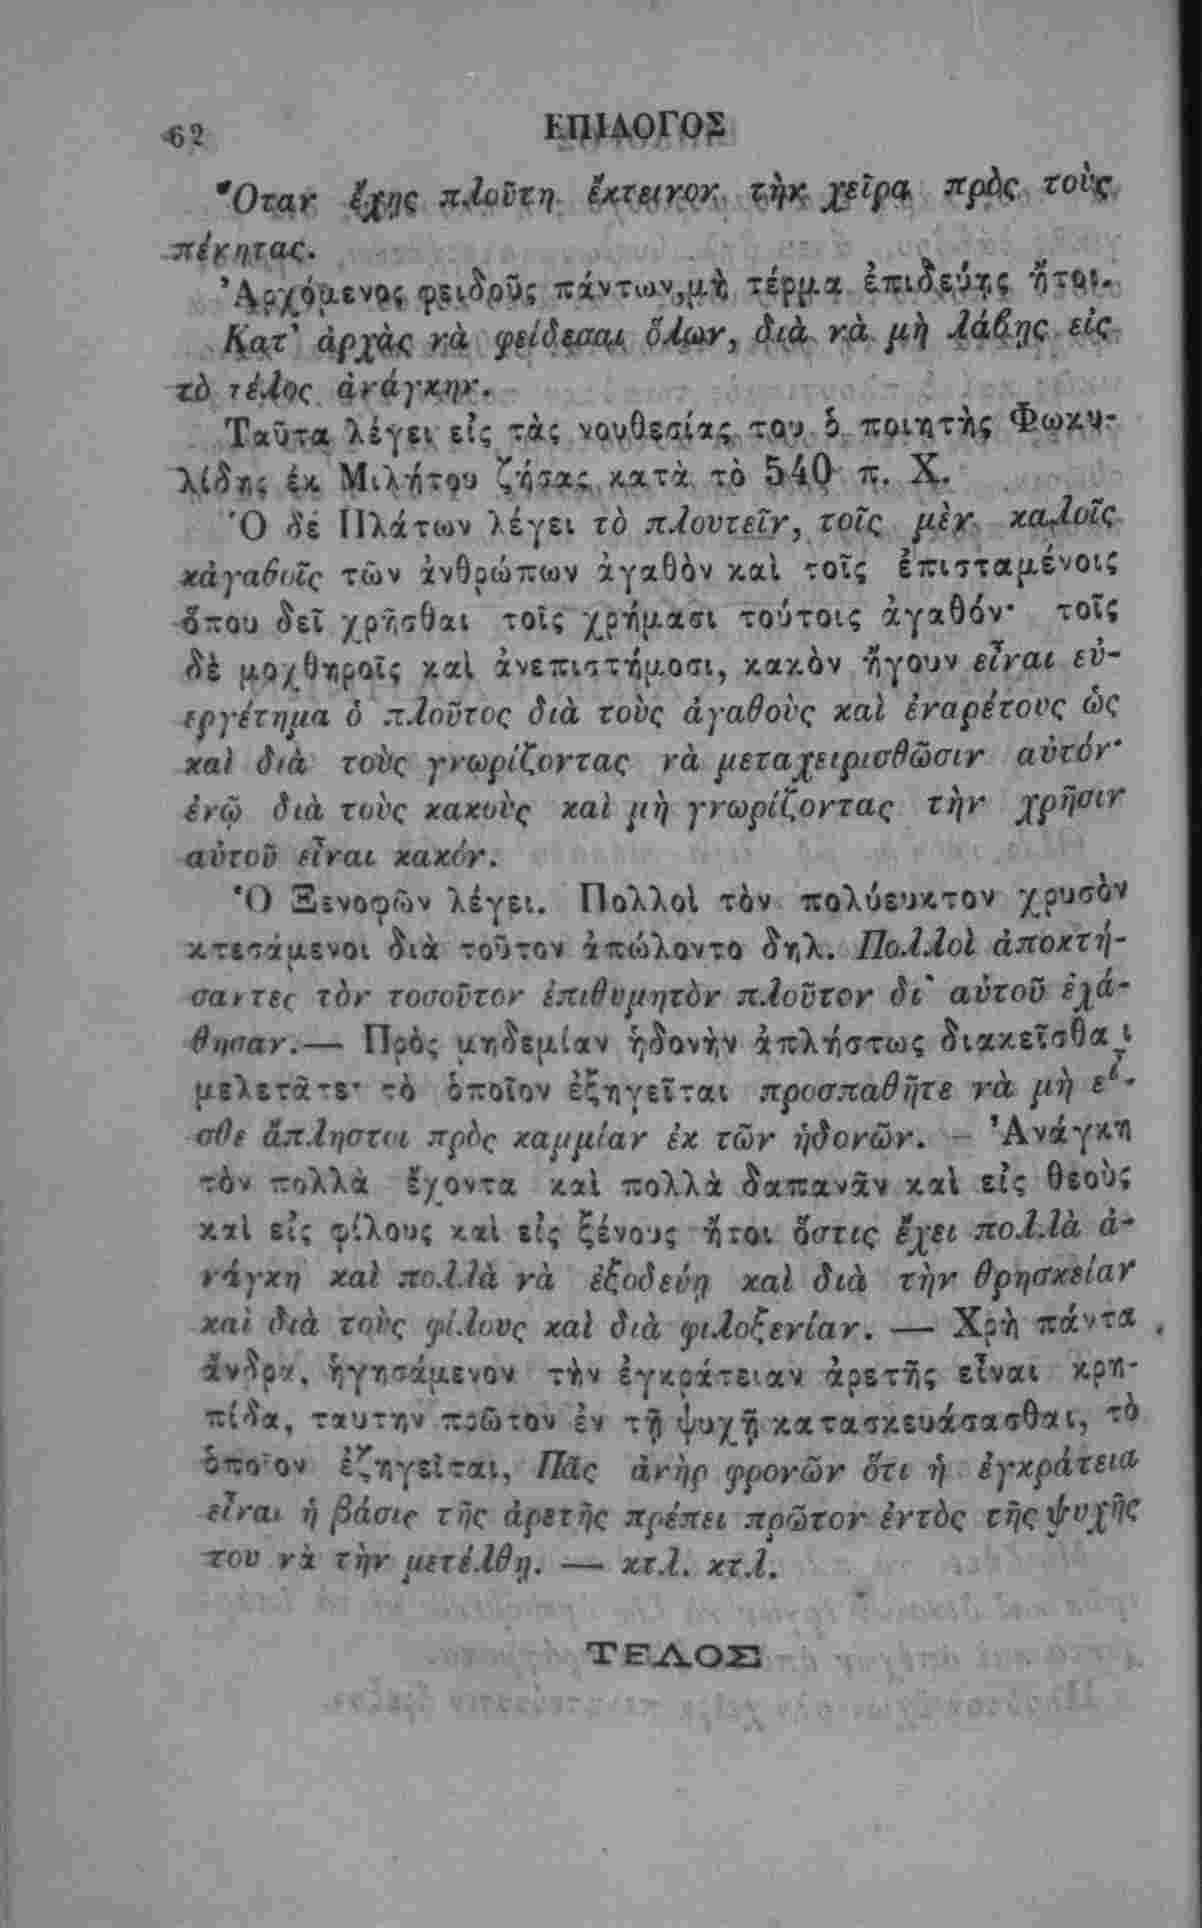 62 ΕΠΙΛΟΓΟΣ
Ὅταν ἔχῃς πλούτη ἔκτεινον τὴν χεῖρα πρὸς τοὺς
πένητας.
Ἀρχόμενος φειδοῦς πάντων, μὴ τέρμα ἐπιδεύῃς ἤτοι.
Κατ' ἀρχὰς νὰ φείδεσαι ὅλων, διὰ νὰ μὴ λάβῃς εἰς
τὸ τέλος ἀνάγκην.
Ταῦτα λέγει εἰς τὰς νουθεσίας του ὁ ποιητὴς Φωκυ-
λίδης ἐκ Μιλήτου ζήσας κατὰ τὸ 540 π. Χ.
Ὁ δὲ Πλάτων λέγει τὸ πλουτεῖν, τοῖς μὲν καλοῖς
κἀγαθοῖς τῶν ἀνθρώπων ἀγαθὸν καὶ τοῖς ἐπισταμένοις
ὅπου δεῖ χρῆσθαι τοῖς χρήμασι τούτοις ἀγαθόν· τοῖς
δὲ μοχθηροῖς καὶ ἀνεπιστήμοσι, κακὸν ἤγουν εἶναι εὐ-
εργέτημα ὁ πλοῦτος διὰ τοὺς ἀγαθοὺς καὶ ἐναρέτους ὡς
καὶ διὰ τοὺς γνωρίζοντας νὰ μεταχειρισθῶσιν αὐτόν·
ἐνῷ διὰ τοὺς κακοὺς καὶ μὴ γνωρίζοντας τὴν χρῆσιν
αὐτοῦ εἶναι κακόν.
Ὁ Ξενοφῶν λέγει. Πολλοὶ τὸν πολύευκτον χρυσὸν
κτεσάμενοι διὰ τοῦτον ἀπώλοντο δηλ. Πολλοὶ ἀποκτή-
σαντες τὸν τοσοῦτον ἐπιθυμητὸν πλοῦτον δι' αὐτοῦ ἐχά-
θησαν.— Πρὸς μηδεμίαν ἡδονὴν ἀπλήστως διακεῖσθαι
μελετᾶτε· τὸ ὁποῖον ἐξηγεῖται προσπαθῆτε νὰ μὴ εἶ-
σθε ἄπληστοι πρὸς καμμίαν ἐκ τῶν ἡδονῶν. — Ἀνάγκη
τὸν πολλὰ ἔχοντα καὶ πολλὰ δαπανᾶν καὶ εἰς θεοὺς
καὶ εἰς φίλους καὶ εἰς ξένους ἤτοι ὅστις ἔχει πολλὰ ἀ-
νάγκη καὶ πολλὰ νὰ ἐξοδεύῃ καὶ διὰ τὴν θρησκείαν
καὶ διὰ τοὺς φίλους καὶ διὰ φιλοξενίαν. — Χρὴ πάντα
ἄνδρα, ἡγησάμενον τὴν ἐγκράτειαν ἀρετῆς εἶναι κρη-
πίδα, ταυτην πρῶτον ἐν τῇ ψυχῇ κατασκευάσασθαι, τὸ
ὁποῖον ἐξηγεῖται, Πᾶς ἀνὴρ φρονῶν ὅτι ἡ ἐγκράτεια
εἶναι ἡ βάσις τῆς ἀρετῆς πρέπει πρῶτον ἐντὸς τῆς ψυχῆς
του νὰ τὴν μετέλθῃ. — κτλ. κτλ.
ΤΕΛΟΣ